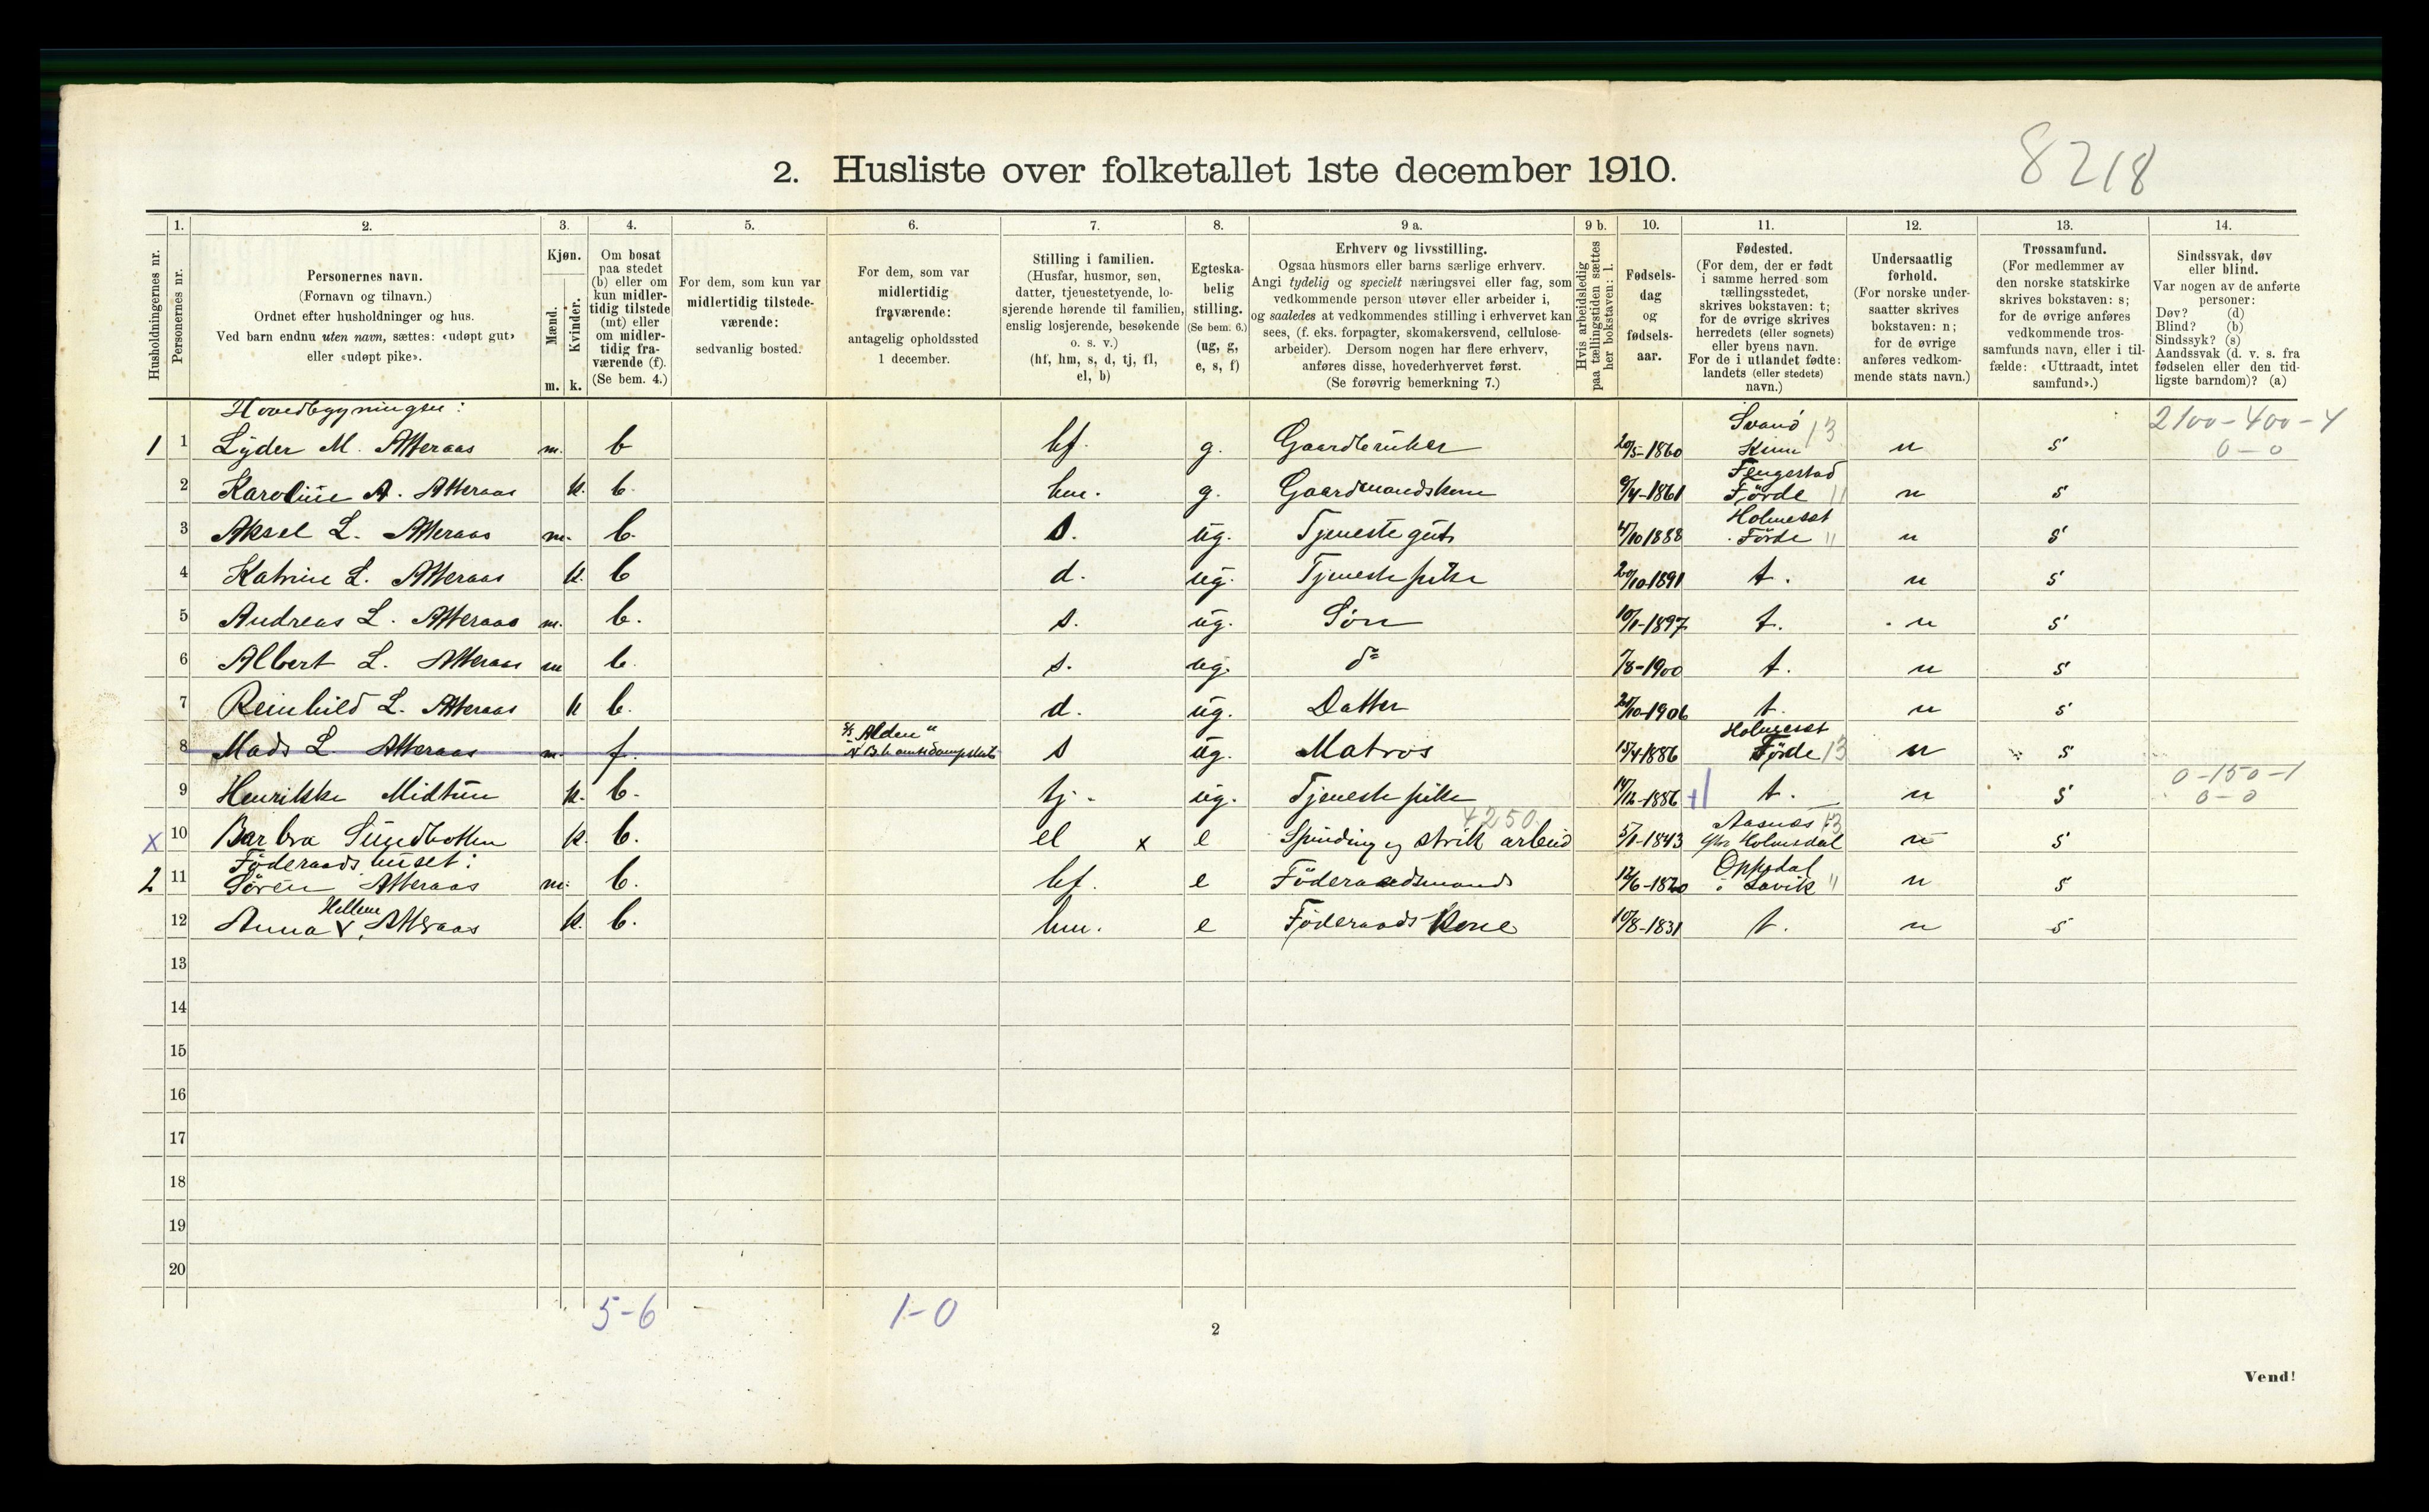 8218
2. Husliste over folketallet 1ste december 1910.
Husholdningernes nr.
1. Personernes nr.
2. Personernes navn.
(Fornavn og tilnavn.)
Ordnet efter husholdninger og hus.
Ved barn endnu uten navn, sættes: «udøpt gut»
eller «udøpt pike».
3. Kjøn.
Mænd. Kvinder.
m. k.
4. Om bosat
paa stedet
(b) eller om
kun midler-
tidig tilstede
(mt) eller
om midler-
tidig fra-
værende (f).
(Se bem. 4.)
5. For dem, som kun var
midlertidig tilstede-
værende:
sedvanlig bosted.
6. For dem, som var
midlertidig
fraværende:
antagelig opholdssted
1 december.
7. Stilling i familien.
(Husfar, husmor, søn,
datter, tjenestetyende, lo-
sjerende hørende til familien,
enslig losjerende, besøkende
o. s. v.)
(hf, hm, s, d, tj, fl,
el, b)
8. Egteska-
belig
stilling.
(Se bem. 6.)
(ug, g,
e, s, f)
9 a. Erhverv og livsstilling.
Ogsaa husmors eller barns særlige erhverv.
Angi tydelig og specielt næringsvei eller fag, som
vedkommende person utøver eller arbeider i,
og saaledes at vedkommendes stilling i erhvervet kan
sees, (f. eks. forpagter, skomakersvend, cellulose-
arbeider). Dersom nogen har flere erhverv,
anføres disse, hovederhvervet først.
(Se forøvrig bemerkning 7.)
9 b. Hvis arbeidsledig
paa tællingstiden sættes
her bokstaven: l.
10. Fødsels-
dag
og
fødsels-
aar.
11. Fødested.
(For dem, der er født
i samme herred som
tællingsstedet,
skrives bokstaven: t;
for de øvrige skrives
herredets (eller sognets)
eller byens navn.
For de i utlandet fødte:
landets (eller stedets)
navn.)
12. Undersaatlig
forhold.
(For norske under-
saatter skrives
bokstaven: n;
for de øvrige
anføres vedkom-
mende stats navn.)
13. Trossamfund.
(For medlemmer av
den norske statskirke
skrives bokstaven: s;
for de øvrige anføres
vedkommende tros-
samfunds navn, eller i til-
fælde: «Uttraadt, intet
samfund».)
14. Sindssvak, døv
eller blind.
Var nogen av de anførte
personer:
Døv? (d)
Blind? (b)
Sindssyk? (s)
Aandssvak (d. v. s. fra
fødselen eller den tid-
ligste barndom)? (a)
Hovedbygningen:
1 1 Lyder M. Atteraas m. b hf. g. Gaardbruker 20/5-1860 Svanö Kinn 13 n s 2100-400-4 0-0
2 Karoline A. Atteraas k. b. hm. g. Gaardmandskone 9/4-1861 Fengestad Förde " n s
3 Aksel L. Atteraas m. b. s. ug. Tjenestegut 4/10 1888 Holmeset Förde " n s
4 Katrine L. Atteraas k. b d. ug. Tjenestepike 20/10-1891 t. n s
5 Andreas L. Atteraas m. b. s. ug. Sön 10/1-1897 t. n s
6 Albert L. Atteraas m b. s. ug. do 7/8-1900 t. n s
7 Reinhild L. Atteraas k b. d. ug. Datter 21/10-1906 t. n s
8 Mads L. Atteraas m. f. s/s "Alden" N. B.h. amtsdampskib s ug. Matros 15/4 1886 Holmeset Förde 13 n s
9 Henrikke Midtun k. b. tj. ug. Tjenestepike 14/12-1886 +1 t. n s 0-150-1 0-0
x 10 Barbra Sundbotten k. b. el x e Spinding og strik arbeid 4250. 5/1-1843 Aasnæs Holmedal 13 n s
Föderaadshuset:
2 11 Sören Atteraas m. b. hf. e Föderaadsmand 12/6-1820 Oppedal i Lavik " n s
12 Anna Hellene Atteraas k. b. hm. e Föderaads Kone 10/8-1831 t. n s
13
14
15
16
17
18
19
20
5-6 1-0
2
Vend!